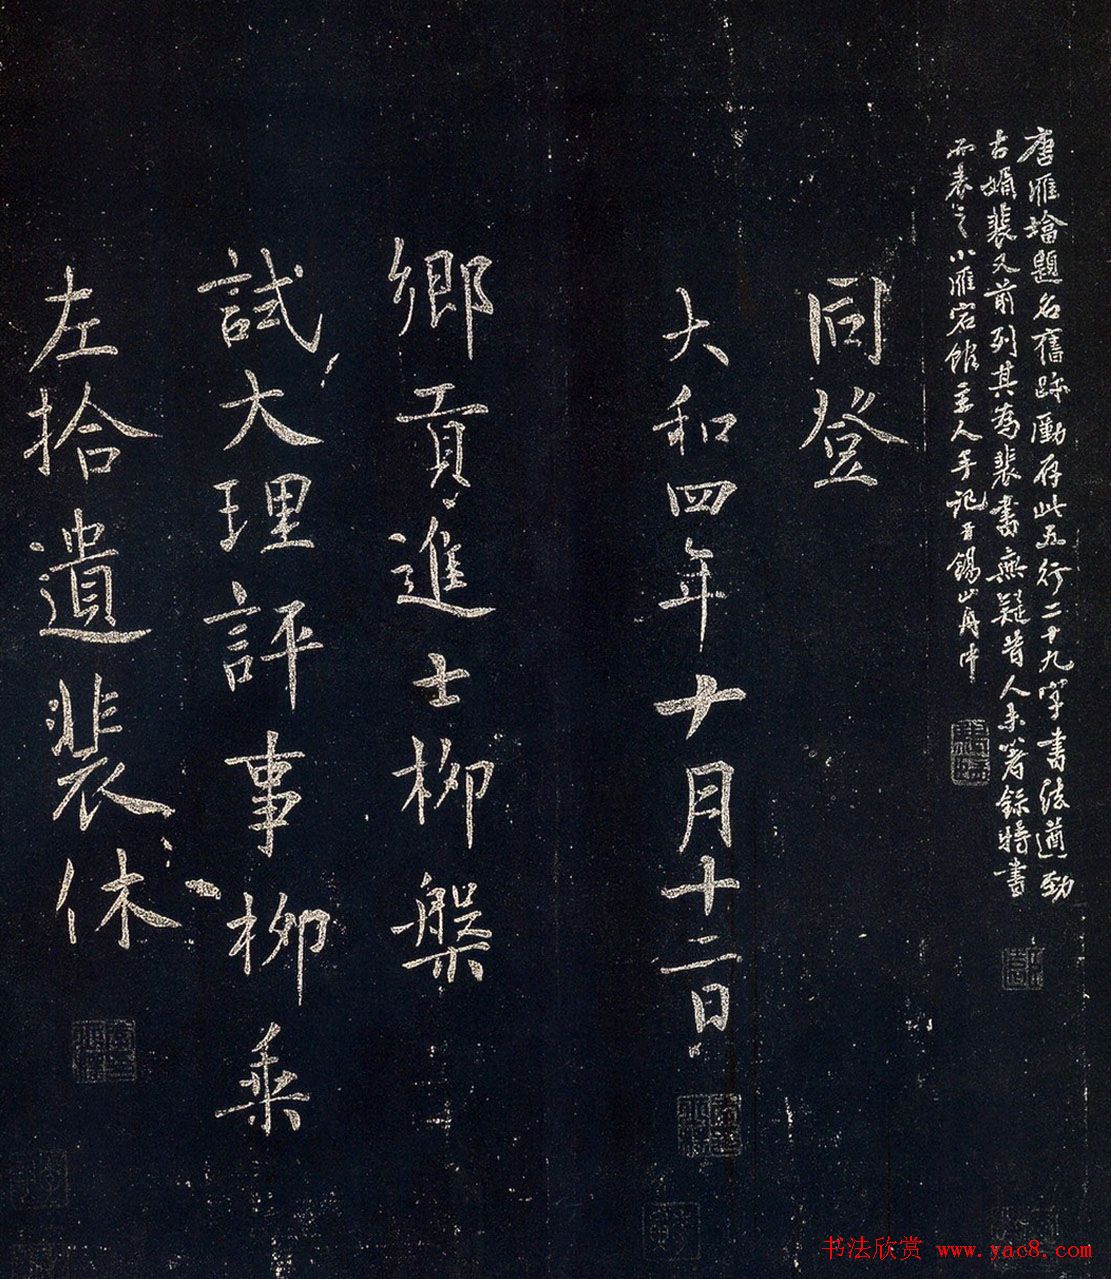 唐雁塔題名舊跡廑存此五行二十九字書法遒勁
古媚裴又前列其為裴書無疑昔人未著錄特書
而表之小雁宕館主人手記 錫山舟
左拾遺裴休
試大理評事柳乘
鄉貢進士柳槃
大和四年十月十二日
同登
书法欣赏 www.yac8.com